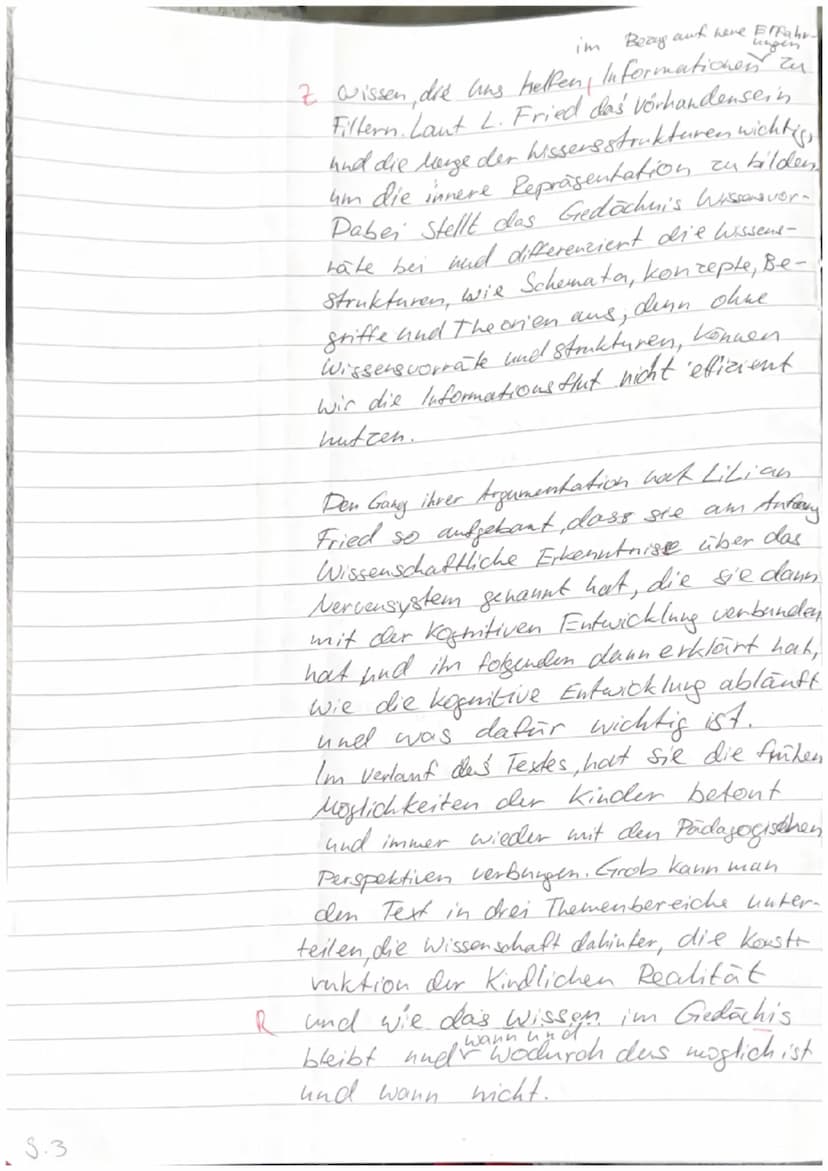 im Bezug auf neue Erfahr-
ungen
Z wissen, die uns helfen, Informationen zu
Filtern. Laut L. Fried das vorhandensein
und die Menge der Wissensstrukturen wichtig,
um die innere Repräsentation zu bilden.
Dabei stellt das Gedächnis Wissensvor-
räte bei und differenziert die Wissens-
strukturen, wie Schemata, konzepte, Be-
griffe und Theorien aus, denn ohne
Wissensvorräte und strukturen, können
wir die Informationsflut nicht effizient
nutzen.
Den Gang ihrer Argumentation hat Lilian
Fried so aufgebaut, dass sie am Anfang
Wissenschaftliche Erkenntnisse über das
Nervensystem genannt hat, die sie dann
mit der Kognitiven Entwicklung verbunden
hat und im folgenden dann erklärt hat,
wie die kognitive Entwicklung abläuft
und was dafür wichtig ist.
Im Verlauf des Textes, hat sie die frühen
Möglichkeiten der Kinder betont
und immer wieder mit den Pädagogischen
Perspektiven verbungen. Grob kann man
den Text in drei Themenbereiche unter-
teilen, die Wissenschaft dahinter, die Konst-
ruktion der Kindlichen Realität
R und wie das Wissen im Gedächis
wann und
bleibt und wodurch das möglich ist
und wann nicht.
S.3